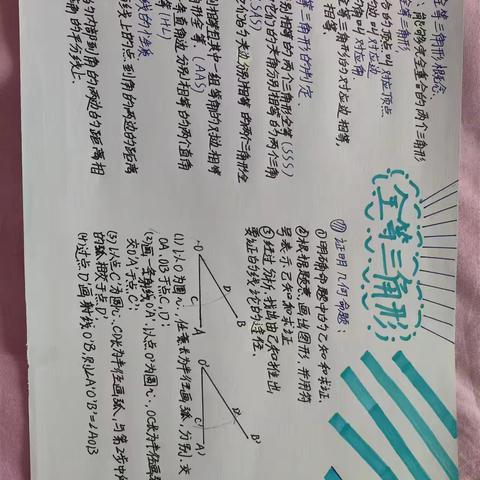 全等三角形
等三角形概念:
能够完全重合的两个三角形
等三角形
合的顶点叫对应顶点
边叫对应边
角叫对应角
等三角形的对应边相等,
相等.
等三角形的判定.
别相等的两个三角形全等(SSS)
它们的夹角分别相等的两个三角
(SAS)
它们的夹边分别相等的两个三角形全
别相等且其中一组等角的对边相等
形全等.(AAS)
直角边分别相等的两个直角
等(HL)
线的性质
线上的点到角的两边的距离
的内部到角的两边的距离相
角的平分线上.
证明几何命题:
①明确命题中的已知和求证.
②根据题意,画出图形,并用符
号表示已知和求证
③经过分析,找出由已知推出
要证的结论的途径.
O C A D B
O' C' A' D' B'
(1)以O为圆心,任意长为半径画弧,分别交
OA,OB于点C,D;
(2)画一条射线O'A',以点O'为圆心,OC长为半径画弧
交O'A'于点C';
(3)以点C'为圆心,CD长为半径画弧,与第2步中
的弧相交于点D'
(4)过点D'画射线O'B',则∠A'O'B'=∠AOB